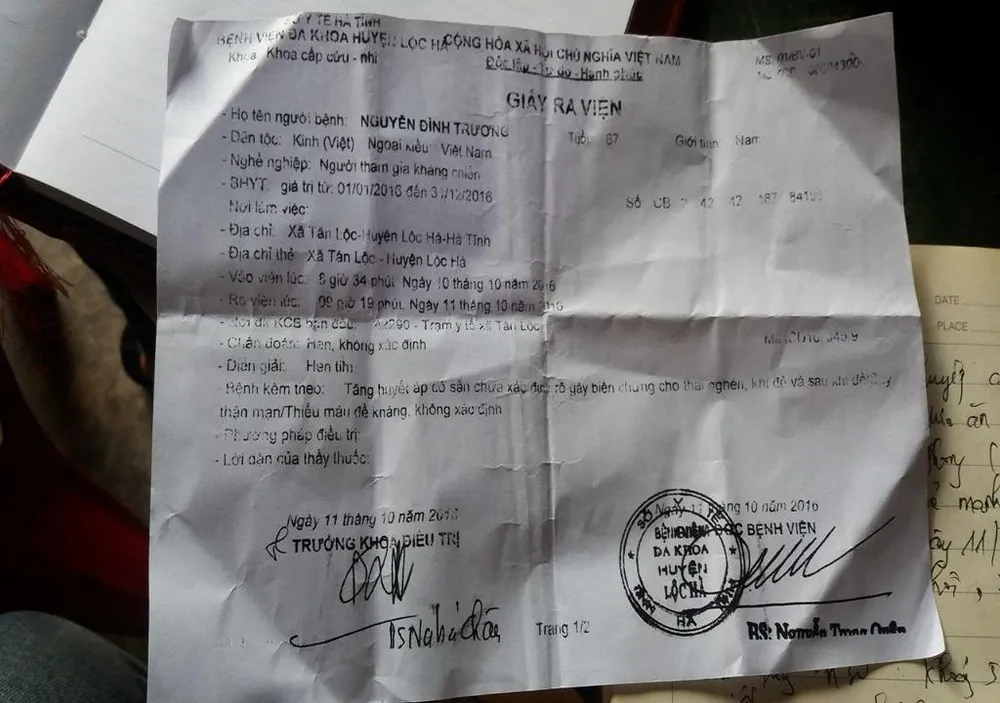 SỞ Y TẾ HÀ TĨNH
BỆNH VIỆN ĐA KHOA HUYỆN LỘC HÀ
CỘNG HÒA XÃ HỘI CHỦ NGHĨA VIỆT NAM
MS: 01/BV-01
Khoa: Khoa cấp cứu - nhi
Độc lập - Tự do - Hạnh phúc
GIẤY RA VIỆN
- Họ tên người bệnh: NGUYỄN ĐÌNH TRƯƠNG Tuổi: 67 Giới tính: Nam
- Dân tộc: Kinh (Việt) Ngoại kiều: Việt Nam
- Nghề nghiệp: Người tham gia kháng chiến
- BHYT: giá trị từ: 01/01/2016 đến 31/12/2016 Số CB 2 42 12 167
Nơi làm việc:
- Địa chỉ: Xã Tân Lộc-Huyện Lộc Hà-Hà Tĩnh
- Địa chỉ thẻ: Xã Tân Lộc - Huyện Lộc Hà
- Vào viện lúc: 8 giờ 34 phút, Ngày 10 tháng 10 năm 2016
- Ra viện lúc: 09 giờ 19 phút, Ngày 11 tháng 10 năm 2016
- Nơi đk KCB ban đầu: 42290 - Trạm y tế xã Tân Lộc
- Chẩn đoán: Hen, không xác định Mã ICD10: J45.9
- Diễn giải: Hen tim
- Bệnh kèm theo: Tăng huyết áp có sẵn chưa xác định rõ gây biến chứng cho thai nghén, khi đẻ và sau khi đẻ/Suy
thận mạn/Thiếu máu đề kháng, không xác định
- Phương pháp điều trị:
- Lời dặn của thầy thuốc:
Ngày 11 tháng 10 năm 2016
TRƯỞNG KHOA ĐIỀU TRỊ
Ngày 11 tháng 10 năm 2016
ĐỐC BỆNH VIỆN
SỞ Y TẾ
BỆNH VIỆN
ĐA KHOA
HUYỆN
LỘC HÀ
TỈNH HÀ TĨNH
Trang 1/2
BS: Nguyễn Trung
DATE
PLACE